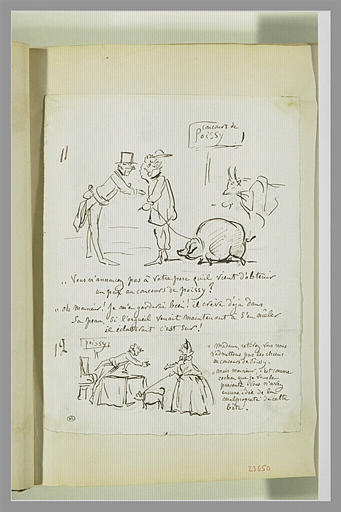 concours de
Poissy
11
" Vous n'annoncez pas à votre porc qu'il vient d'obtenir
un prix au concours de poissy ?
" oh monsieur ! Je m'en garderai bien ! il crève déjà dans
sa peau, si l'orgueil venait maintenant à s'en mêler
il éclaterait c'est sûr !
12
poissy
" Madame petitoy, nous
n'admettons pas les chiens
au concours de Poissy.
" mais monsieur, c'est comme
cochon que je vous le
présente, vous n'avez
aucune idée de la
malpropreté de cette
bête.
23650